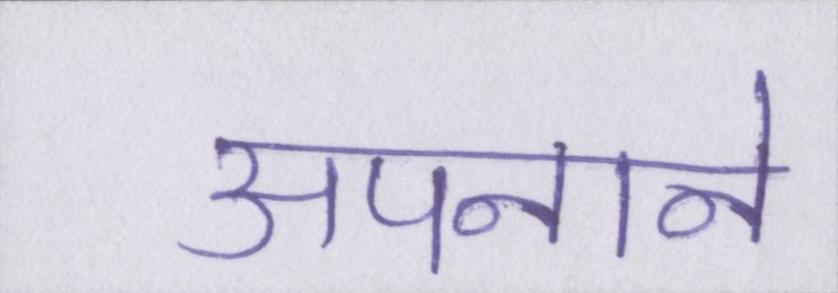 अपनाने